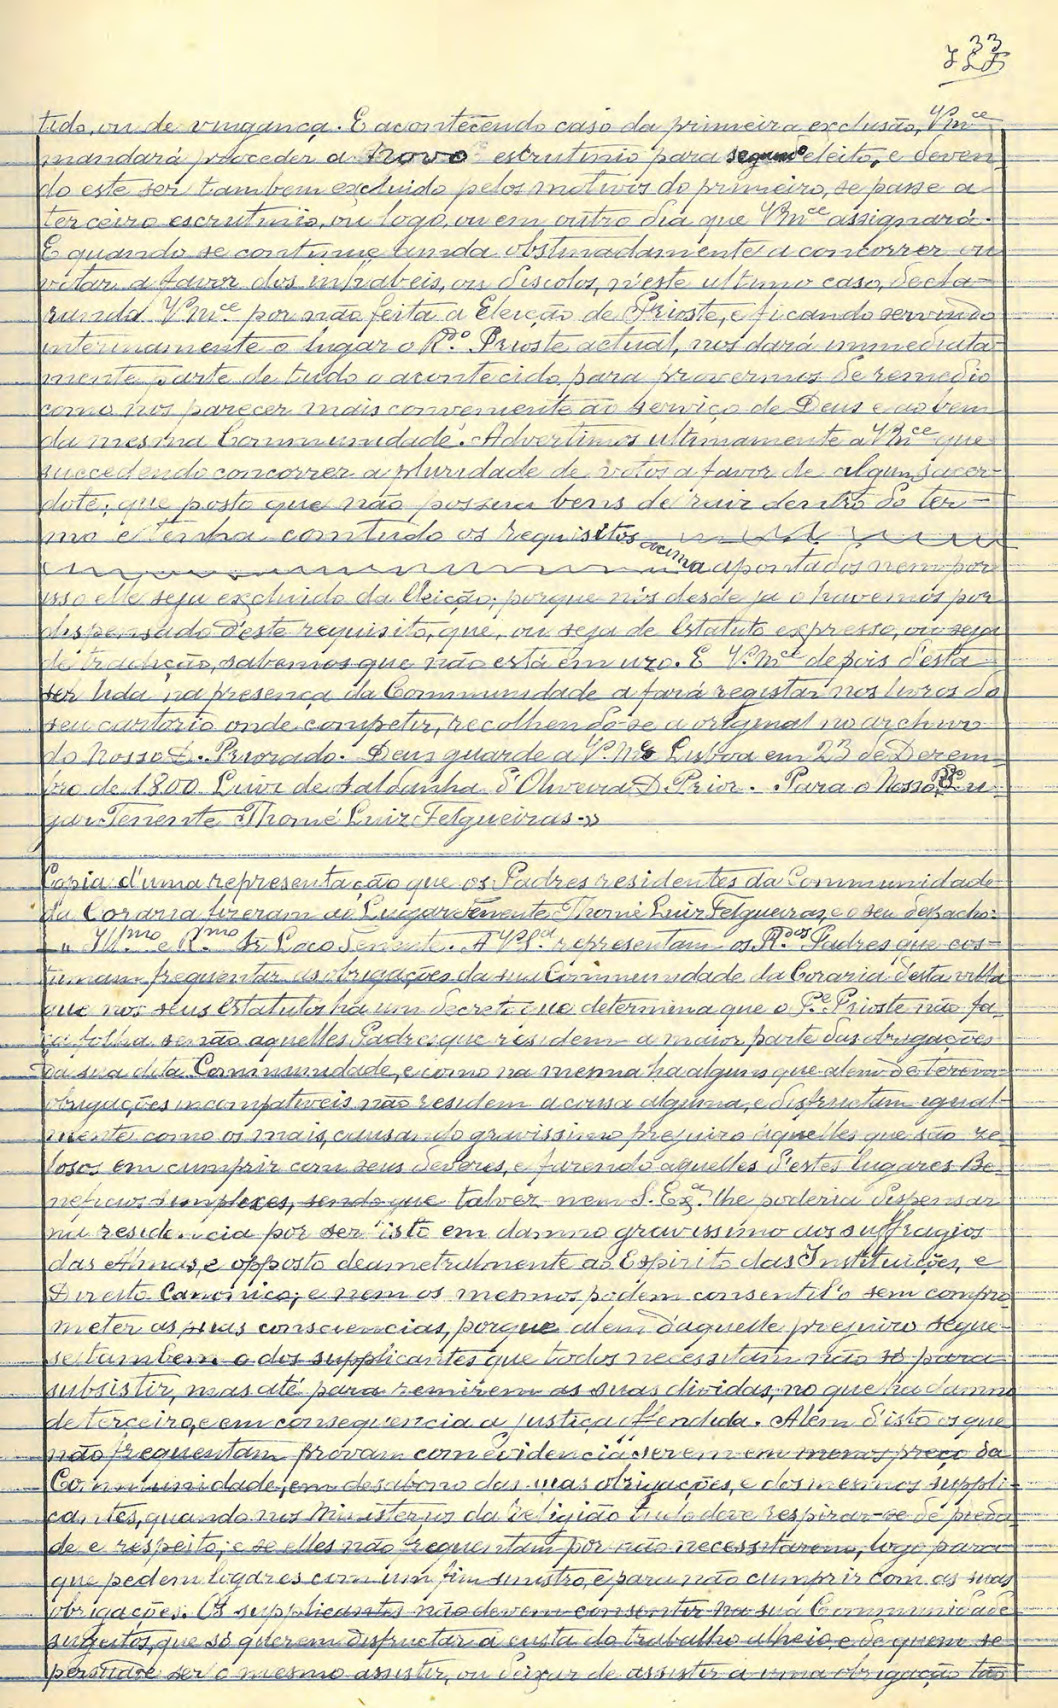 33
tido, ou de vingança. E acontecendo caso da primeira exclusão, Vmce
mandará proceder a novo escrutinio para segundo eleito, e deven
do este ser tambem excluido pelos motivos do primeiro, se passe a
terceiro escrutinio, ou logo, ou em outro dia que Vmce assignará.
E quando se continue ainda obstinadamente a concorrer ou
votar a favor dos inhabeis, ou discolos, n'este ultimo caso, decla-
rando Vmce por não feita a Eleição de Prioste, e ficando servindo
interinamente o lugar o Rdo Prioste actual, nos dará immediata-
mente parte de tudo o acontecido, para provermos de remedio
como nos parecer mais conveniente ao serviço de Deus e ao bem
da mesma Communidade. Advertimos ultimamente a Vmce que
succedendo concorrer a pluridade de votos a favor de algum sacer-
dote, que posto que não possua bens de raiz dentro do ter-
mo e tenha comtudo os requisitos
acima apontados nem por
isso elle seja excluido da Eleição; porque nós desde ja o havemos por
dispensado d'este requisito, que, ou seja de Estatuto expresso, ou seja
de tradição, sabemos que não está em uzo. E V.mce depois d'esta
ser lida na presença da Communidade a fará registar nos livros do
seu cartorio onde competir, recolhendo-se a original no archivo
do Nosso D. Priorado. Deus guarde a V.Mce Lisboa em 23 de Dezem-
bro de 1800. Luiz de Saldanha d'Oliveira D. Prior. Para o Nosso Lu-
gar Tenente Thomé Luiz Felgueiras.»
Copia d'uma representação que os Padres residentes da Communidade
da Coraria fizeram ao Lugar Tenente Thomé Luiz Felgueiras, e o seu despacho:
" Ill.mo e R.mo Sr. Loco Tenente. A V.S.a representam os R.dos Padres, que cos-
tumam frequentar as obrigações da sua Communidade da Coraria, d'esta villa
que nos seus Estatutos ha um decreto que determina que o P.e Prioste não fa-
ça folha senão aquelles Padres que residem a maior parte das obrigações
da sua dita Communidade, e como na mesma ha alguns que alem de terem
obrigações incompativeis não residem a cousa alguma, e disfructam igual-
mente como os mais, causando gravissimo prejuizo áquelles que são ze-
losos em cumprir com seus deveres, e fazendo aquelles d'estes lugares Be-
neficios simplexes, sendo que talvez nem S. Ex.a lhe poderia dispensar
na residencia por ser isto em damno gravissimo aos suffragios
das Almas, e opposto deametralmente ao Espirito das Instituições, e
Direito Canonico; e nem os mesmos podem consentil'o sem compro-
meter as suas consciencias, porque alem d'aquelle prejuizo segue-
se tambem o dos supplicantes que todos necessitam não só para
subsistir, mas até para remirem as suas dividas, no que ha damno
de terceiro, e em consequencia a justiça offendida. Alem d'isto os que
não frequentam provam com evidencia serem em menos preço da
Communidade, em desabono das suas obrigações, e dos mesmos suppli-
cantes, quando nos Ministerios da Religião tudo deve respirar-se de pieda-
de e respeito; e se elles não frequentam por não necessitarem, logo para
que pedem logares com um fim sinistro, e para não cumprir com as suas
obrigações. Os supplicantes não devem consentir na sua Communidade
sugeitos, que só querem disfructar á custa do trabalho alheio e de quem se
persuade ser o mesmo assistir, ou deixar de assistir a uma obrigação tão